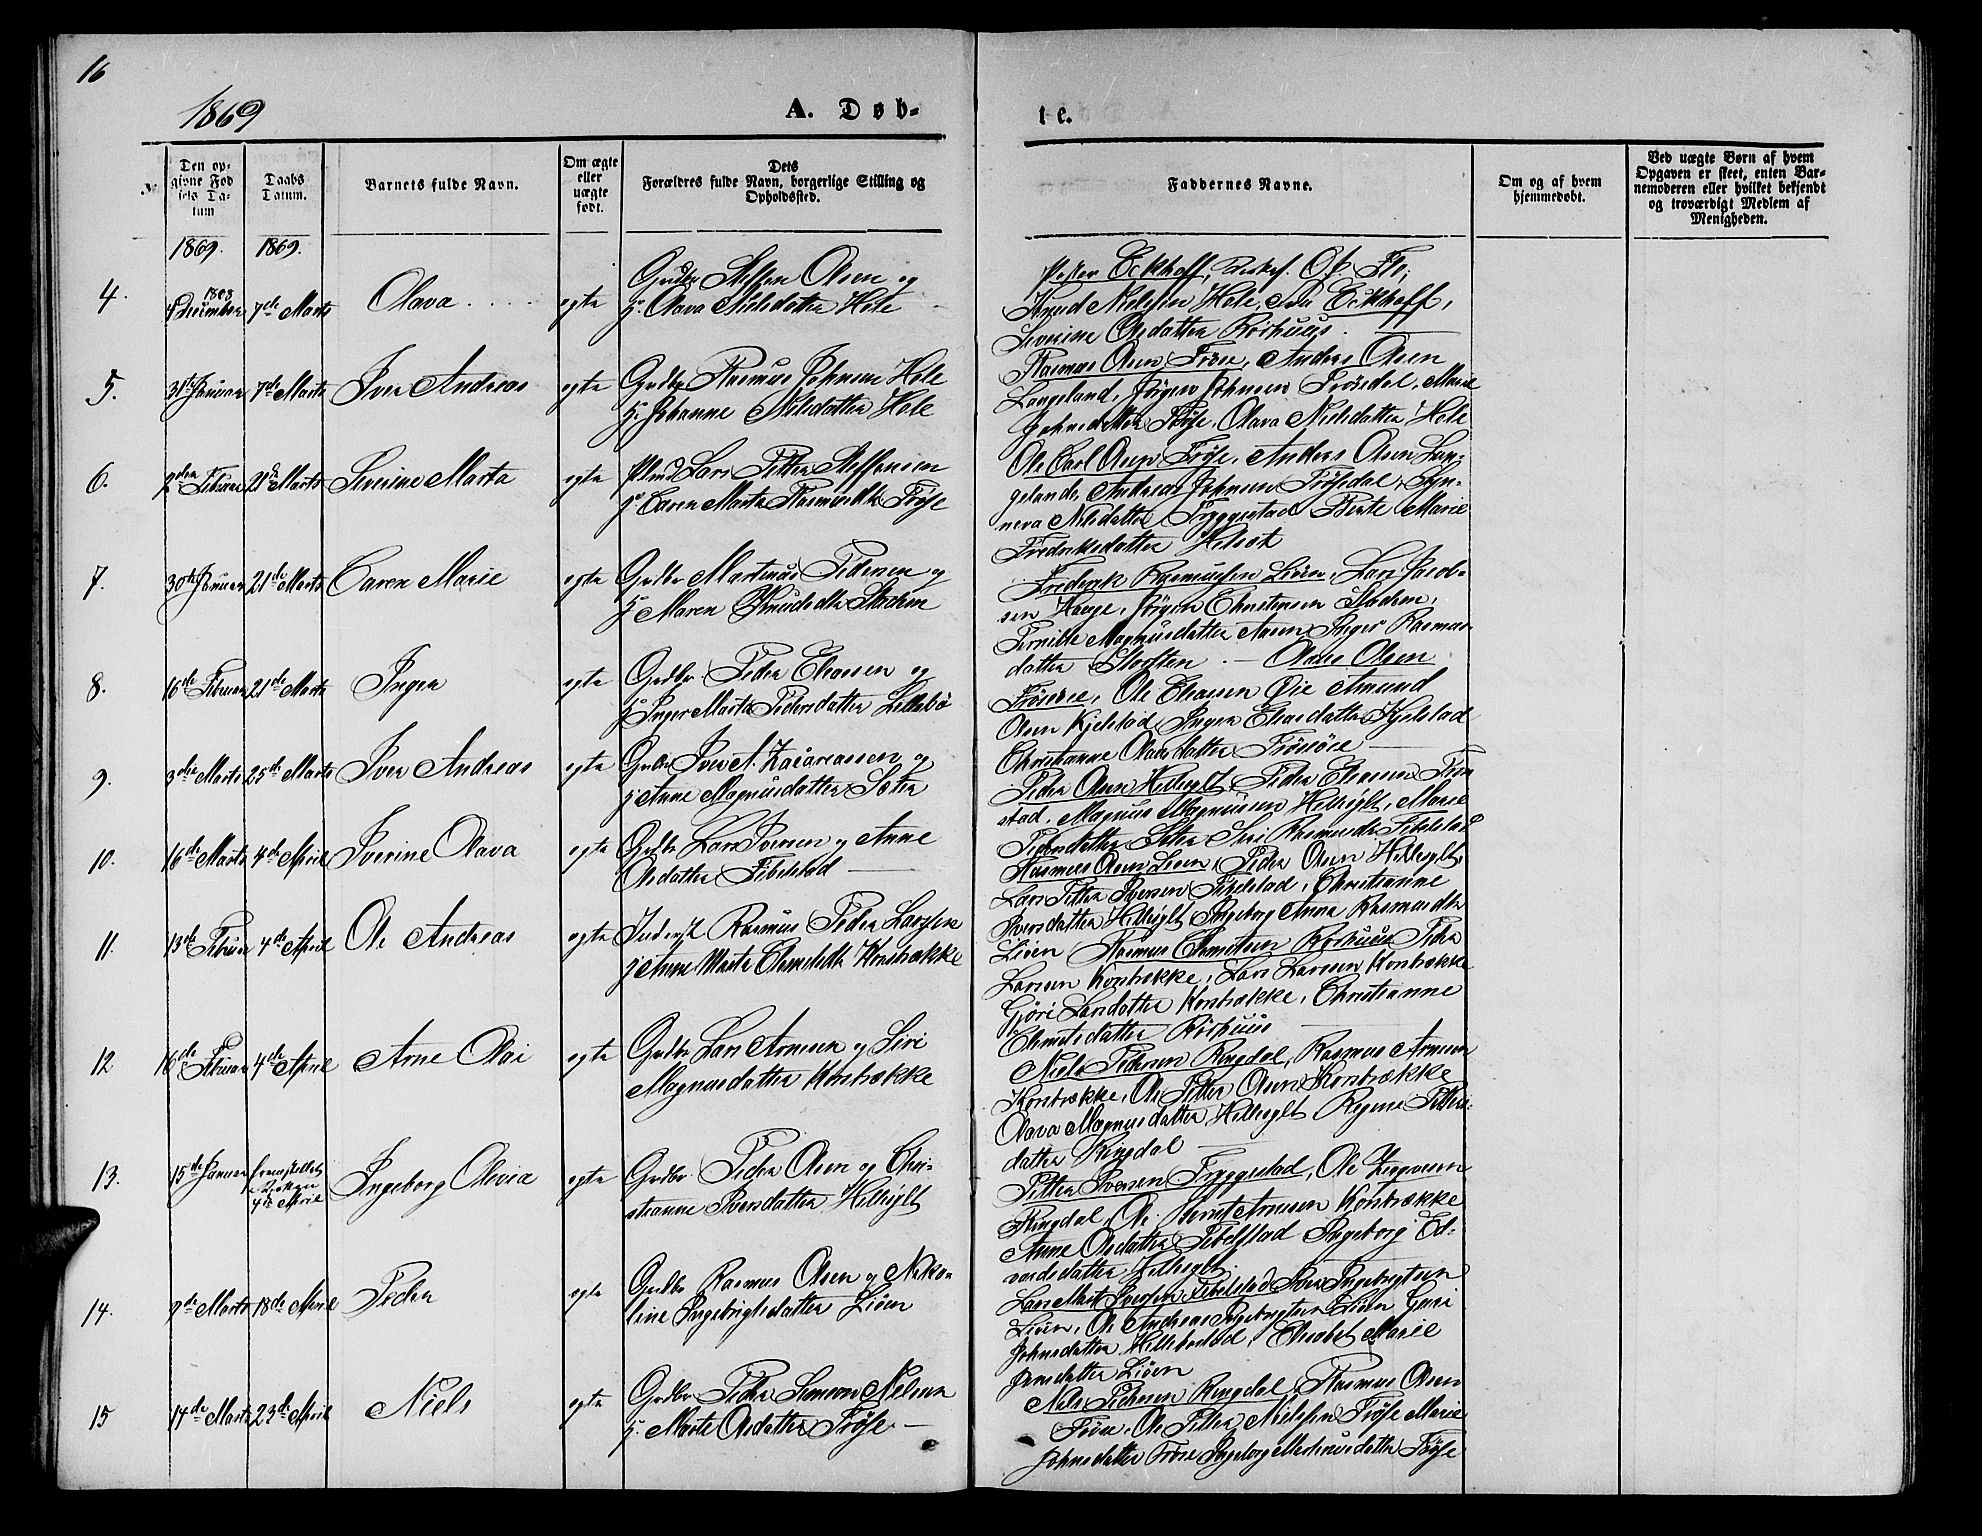 16
1869
A. Døb-
te.
№
Den op-
givne Fød
sels Da-
tum
Daabs
Datum.
Barnets fulde Navn.
Om ægte
eller
uægte
født.
Dets
Forældres fulde Navn, borgerlige Stilling og
Opholdssted.
Faddernes Navne.
Om og af hvem
hjemmedøbt.
Ved uægte Børn af hvem
Opgaven er skeet, enten Bar-
nemoderen eller hvilket bekjendt
og troværdigt Medlem af
Menigheden.
1869. 1869.
4. 1868 December 7de Marts Olava egte
Gudbr Steffen Olsen og
H. Olava Nielsdatter Hole
Pastor Eckhoff,
Knud Nielssen Hole, Eckhoff,
Severine Olsdatter Rørhuus.
5. 31te Januar 7de Marts Iver Andreas egte
Grdbr Rasmus Johnsen Hole
H. Johanne Nielsdatter Hole
Rasmus Olsen Frøse, Anders Olsen
Langeland, Jørgen Johnsen Frøsdal, Marie
Johnsdatter Frøse, Olava Nielsdatter Hole
6. 2den Februar 21de Marts Severine Marta egte
Plmd Lars Petter Steffensen
H. Caren Marta Rasmusdtr Frøse
Ole Carl Olsen Frøse, Anders Olsen Lan-
geland, Andreas Johnsen Frøsdal, Syn-
neva Nilsdatter Tryggestad Berte Marie
Fredriksdatter Helsek
7. 30te Januar 21de Marts Caren Marie egte
Grdbr Martinus Pedersen og
H. Maren Knudsdtr Stadem
Frederik Rasmussen Liøen, Lars Jacob-
sen Hauge, Jørgen Christensen Stadem,
Pernille Magnusdatter Aasen Inger Rasmus-
datter Storsten. — Claus Olsen
8. 16de Februar 21de Marts Inger egte
Grdbr Peder Eliassen og
H. Inger Marta Pedersdatter Lillebø
Frøsøse, Ole Eliassen Øie Amund
Olsen Kjelstad, Inger Eliasdatter Kjelstad
Christianne Clausdatter Frøsøse
9. 3die Marts 25de Marts Iver Andreas egte
Grdbr Iver A. Zacariassen og
H Anne Magnusdatter Sæter
Peder Olsen Hellesylt, Peder Eliassen
stad, Magnus Magnussen Hellesylt, Marie
Pedersdatter Sæter Siri Rasmusdtr Fibelstad
10. 16de Marts 4de April Iverine Olava egte
Grdbr Lars Iversen og Anne
Olsdatter Fibelstad
Rasmus Olsen Liøen, Peder Olsen Hellesylt,
Lars Petter Iversen Fibelstad, Christianne
Iversdatter Hellesylt Ingeborg Anna Rasmusdtr
11. 13de Februar 4de April Ole Andreas egte
Inderst Rasmus Peder Larssen
H Anne Marta Christsdtr Korsbrække
Liøen Rasmus Christensen Rørhuus Peder
Larsen Korsbrække, Lars Larsen Korsbrække
Gjøri Larsdatter Korsbrække, Christianne
Christsdatter Rørhuus
12 16de Februar 4de April Arne Olai egte
Grdbr Lars Arnesen og Siri
Magnusdatter Korsbrække
Niels Pedersen Ringdal, Rasmus Arnesen
Korsbrække, Ole Petter Olsen Korsbrække
Olava Magnusdatter Hellesylt Regine Petters-
datter Ringdal
13. 15de Januar fremstillet i Kirken 4de April Ingeborg Olivia egte
Grdbr Peder Olsen og Chri-
stianne Iversdatter Hellesylt
Petter Iversen Tryggestad, Ole
Ringdal, Ole Bernt Arnesen Korsbrække
Anne Olsdatter Fibelstad Ingeborg Ed-
vardsdatter Hellesylt
14. 9de Marts 18de April Peder egte
Grdbr Rasmus Olsen og Niko-
line Ingebrigtsdatter Liøen
Lars Marit Iversen Fibelstad Iver Ingebrigtsen
Liøen, Ole Andreas Ingebrigtsen Liøen Guri
Johnsdatter Hellebostad, Elisabet Marie
Jensdatter Liøen
15 14de Marts 23de April Niels egte
Grdbr Peder Simeon Nielsen
H. Marte Olsdatter Frøse
Niels Pedersen Ringdal, Rasmus Olsen
Frøse, Ole Petter Nielssen Frøse Marie
Johnsdatter Frøse Ingeborg Martinusdatter Frøse